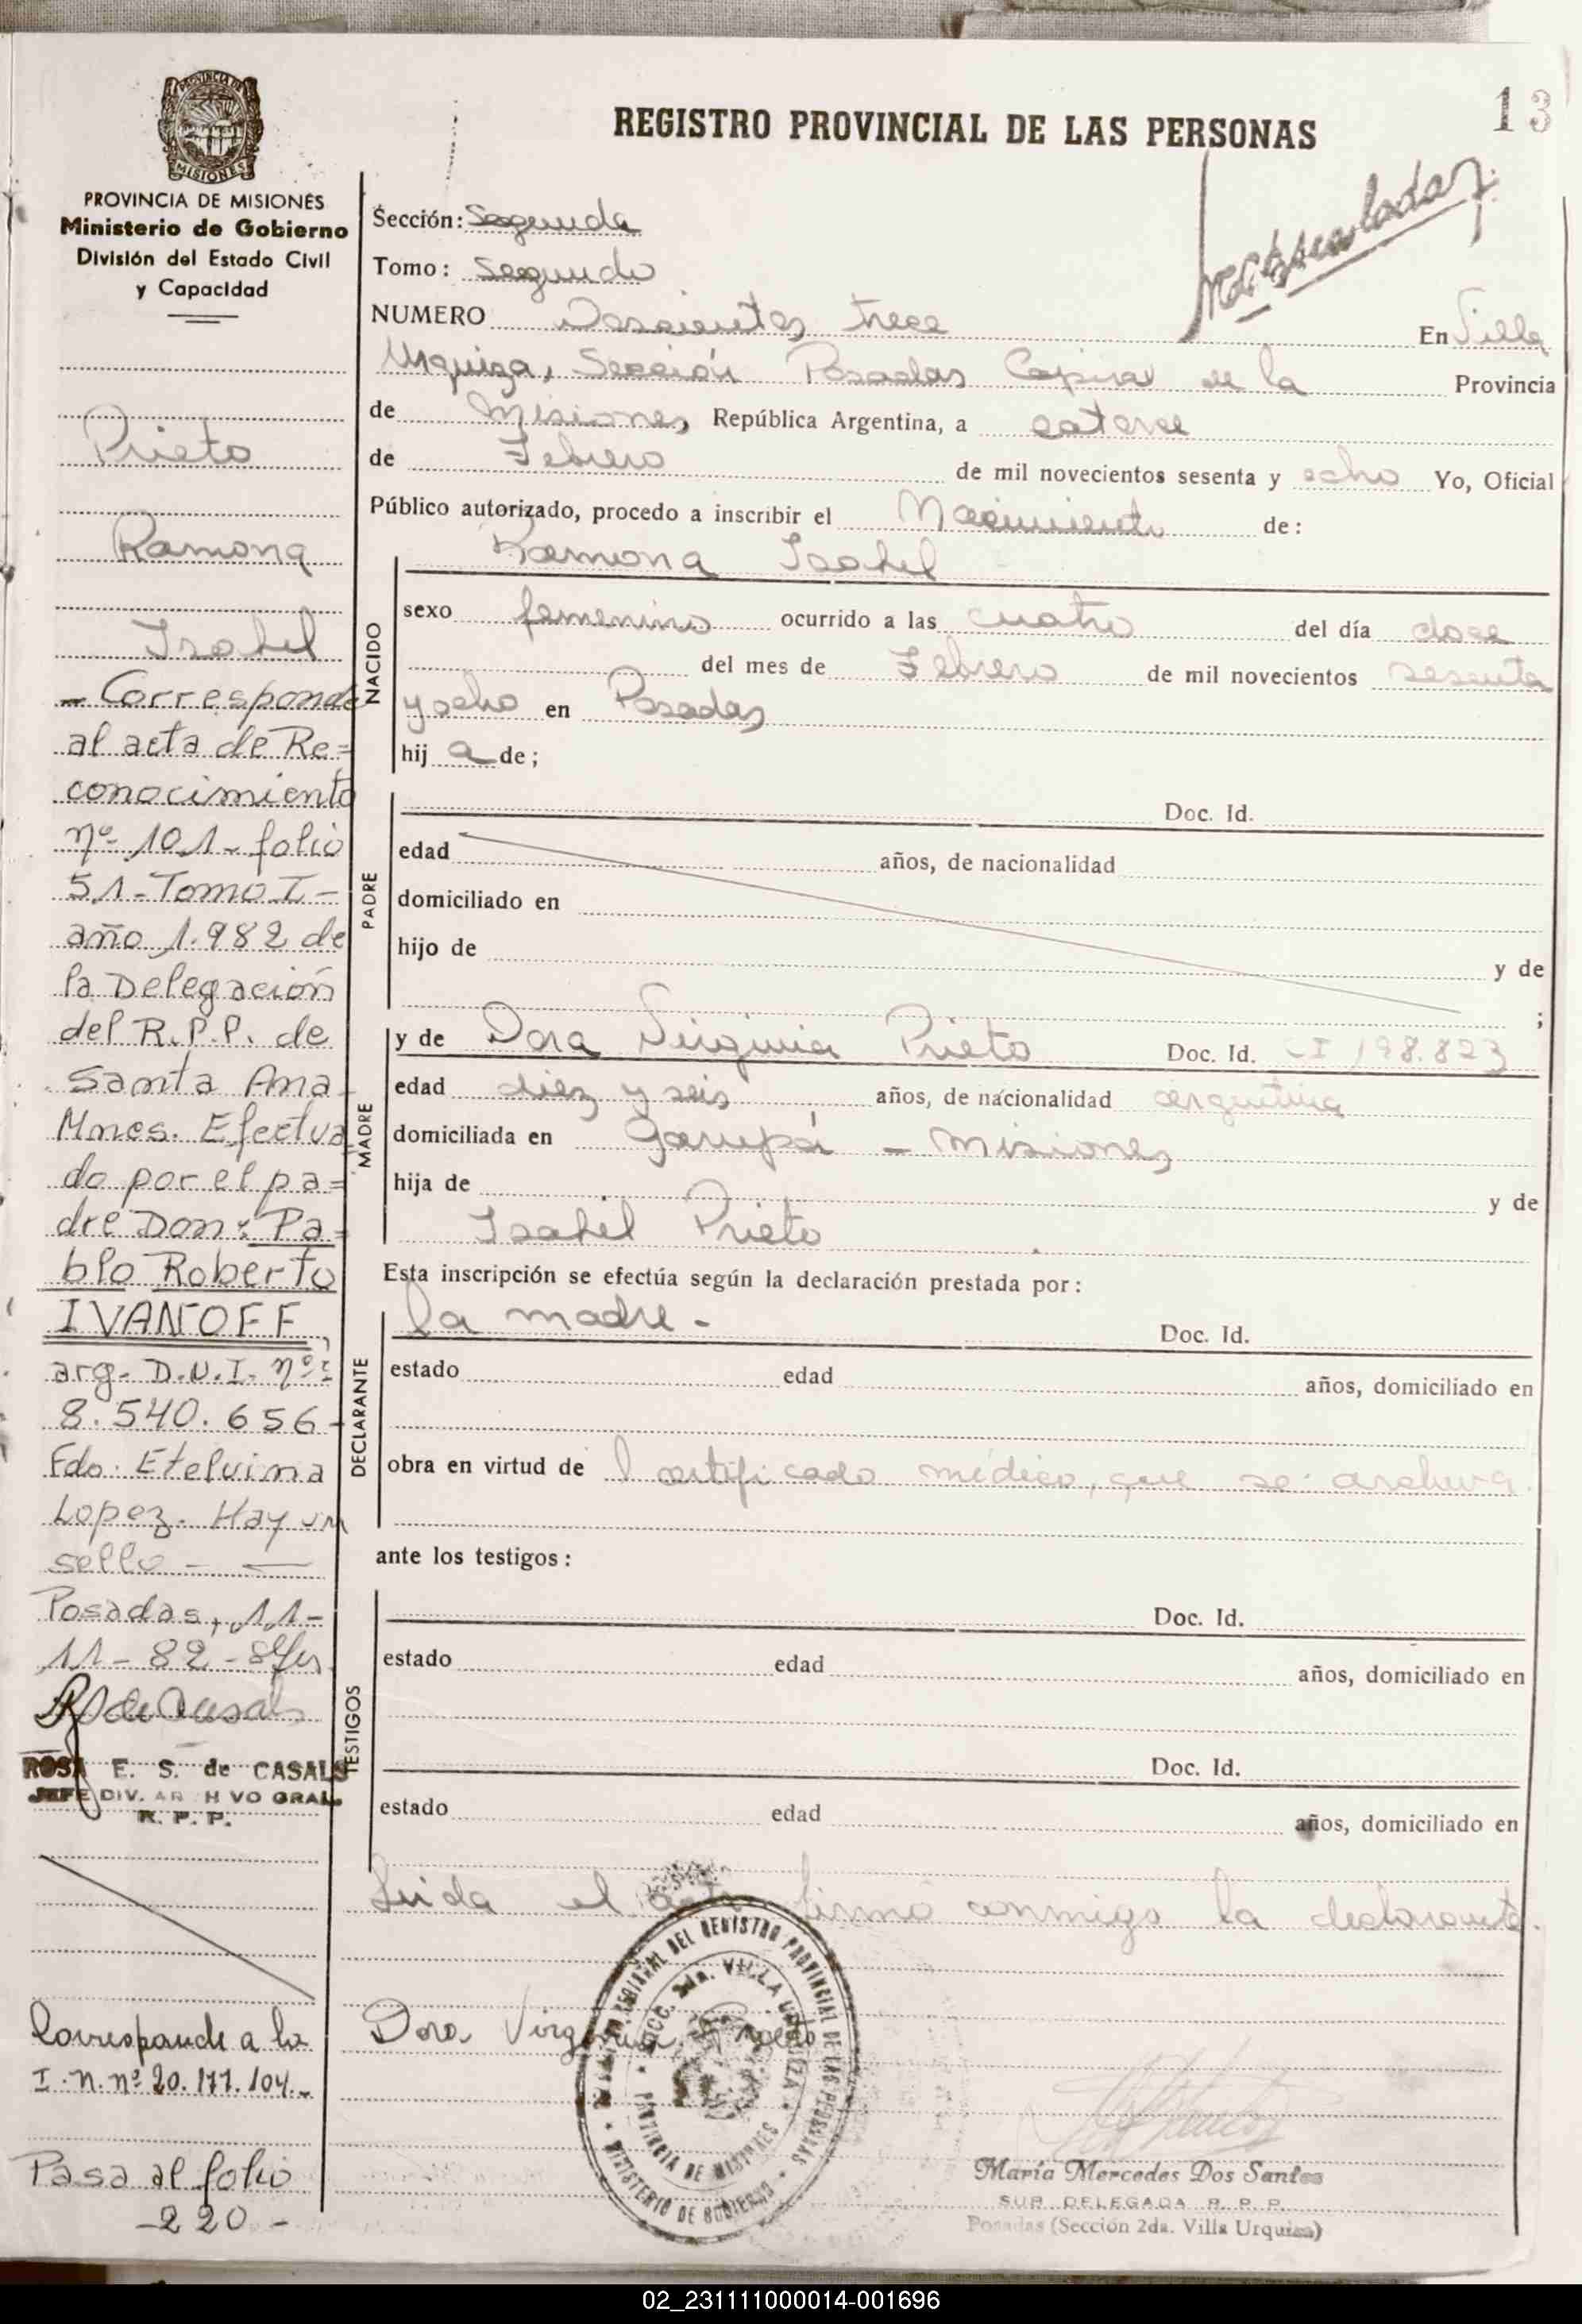 13
REGISTRO PROVINCIAL DE LAS PERSONAS
Matriculada
MISIONES
PROVINCIA DE MISIONES
Ministerio de Gobierno
División del Estado Civil
y Capacidad
Sección: Segunda
Tomo: Segundo
NUMERO Doscientos trece En Villa
Urquiza, Sección Posadas Capital de la Provincia
de Misiones, República Argentina, a catorce
de Febrero de mil novecientos sesenta y ocho Yo, Oficial
Público autorizado, procedo a inscribir el Nacimiento de:
NACIDO
Ramona Isabel
sexo femenino ocurrido a las cuatro del día doce
del mes de Febrero de mil novecientos sesenta
y ocho en Posadas
hij a de;
PADRE
Doc. Id.
edad años, de nacionalidad
domiciliado en
hijo de y de
;
MADRE
y de Dora Virginia Prieto Doc. Id. CI 198.823
edad diez y seis años, de nacionalidad argentina
domiciliada en Garupá - Misiones
hija de y de
Isabel Prieto
Esta inscripción se efectúa según la declaración prestada por:
DECLARANTE
la madre - Doc. Id.
estado edad años, domiciliado en
obra en virtud de l certificado médico, que se archiva.
ante los testigos:
TESTIGOS
Doc. Id.
estado edad años, domiciliado en
Doc. Id.
estado edad años, domiciliado en
Leida el acta firmó conmigo la declarante.
Dora Virginia Prieto
REGIONAL DEL REGISTRO PROVINCIAL DE LAS PERSONAS
MINISTERIO DE GOBIERNO
SECC. 2da. VILLA URQUIZA
PROVINCIA DE MISIONES
María Mercedes Dos Santos
SUB DELEGADA R. P. P.
Posadas (Sección 2da. Villa Urquiza)
Prieto
Ramona
Isabel
- Corresponde
al acta de Re=
conocimiento
nº 101 - folio
51 - Tomo I -
año 1.982 de
la Delegación
del R.P.P. de
Santa Ana -
Mnes. Efectua
do por el pa=
dre Don: Pa=
blo Roberto
IVANOFF,
arg. D.N.I. nº:
8.540.656 -
Fdo. Etelvina
Lopez. Hay un
sello - -
Posadas, 11-
11-82 -
ROSA E. S. de CASALS
JEFE DIV. ARCHIVO GRAL.
R. P. P.
Corresponde a la
I.N. nº 20.177.104.-
Pasa al folio
- 220 -
02_231111000014-001696